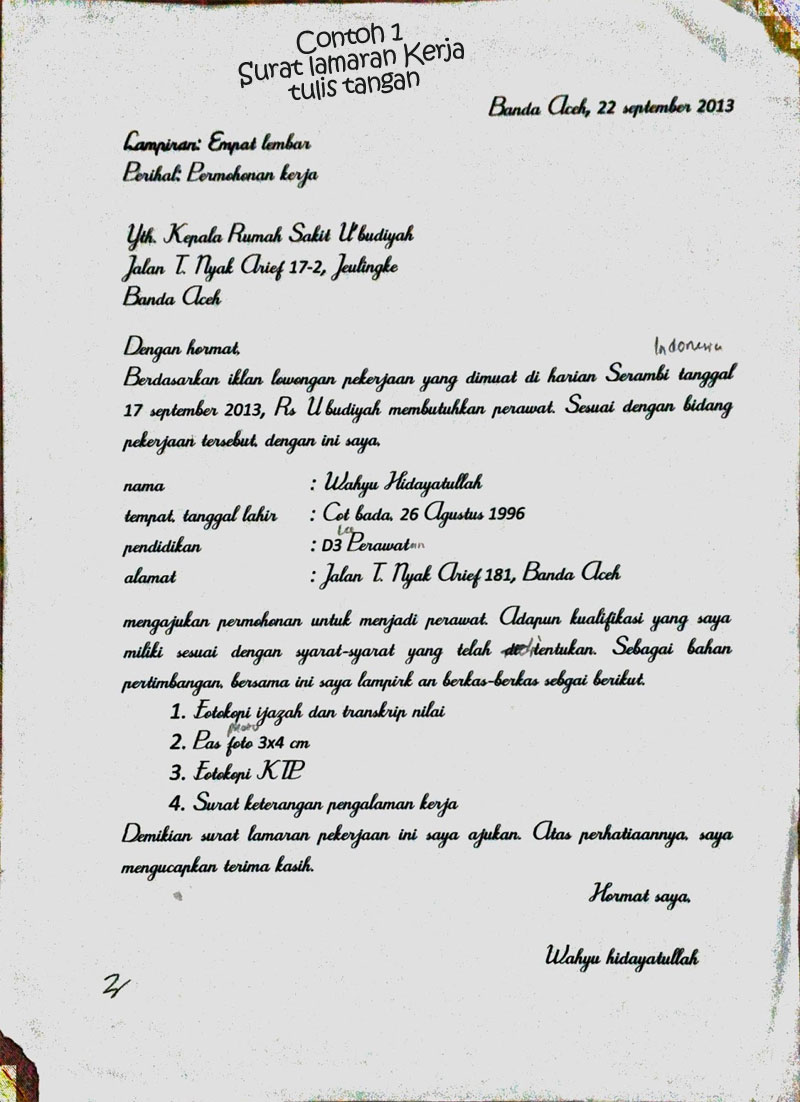 Contoh 1
Surat lamaran Kerja
tulis tangan
Banda Aceh, 22 september 2013
Lampiran: Empat lembar
Perihal: Permohonan kerja
Yth. Kepala Rumah Sakit U'budiyah
Jalan T. Nyak Arief 17-2, Jeulingke
Banda Aceh
Dengan hormat,
Indonesia
Berdasarkan iklan lowongan pekerjaan yang dimuat di harian Serambi tanggal
17 september 2013, Rs U'budiyah membutuhkan perawat. Sesuai dengan bidang
pekerjaan tersebut, dengan ini saya,
nama : Wahyu Hidayatullah
tempat, tanggal lahir : Cot bada, 26 Agustus 1996
pendidikan : D3 Perawatan
alamat : Jalan T. Nyak Arief 181, Banda Aceh
mengajukan permohonan untuk menjadi perawat. Adapun kualifikasi yang saya
miliki sesuai dengan syarat-syarat yang telah ditentukan. Sebagai bahan
pertimbangan, bersama ini saya lampirk an berkas-berkas sebgai berikut.
1. Fotokopi ijazah dan transkrip nilai
2. Pas foto 3x4 cm
3. Fotokopi KTP
4. Surat keterangan pengalaman kerja
Demikian surat lamaran pekerjaan ini saya ajukan. Atas perhatiaannya, saya
mengucapkan terima kasih.
Hormat saya,
Wahyu hidayatullah